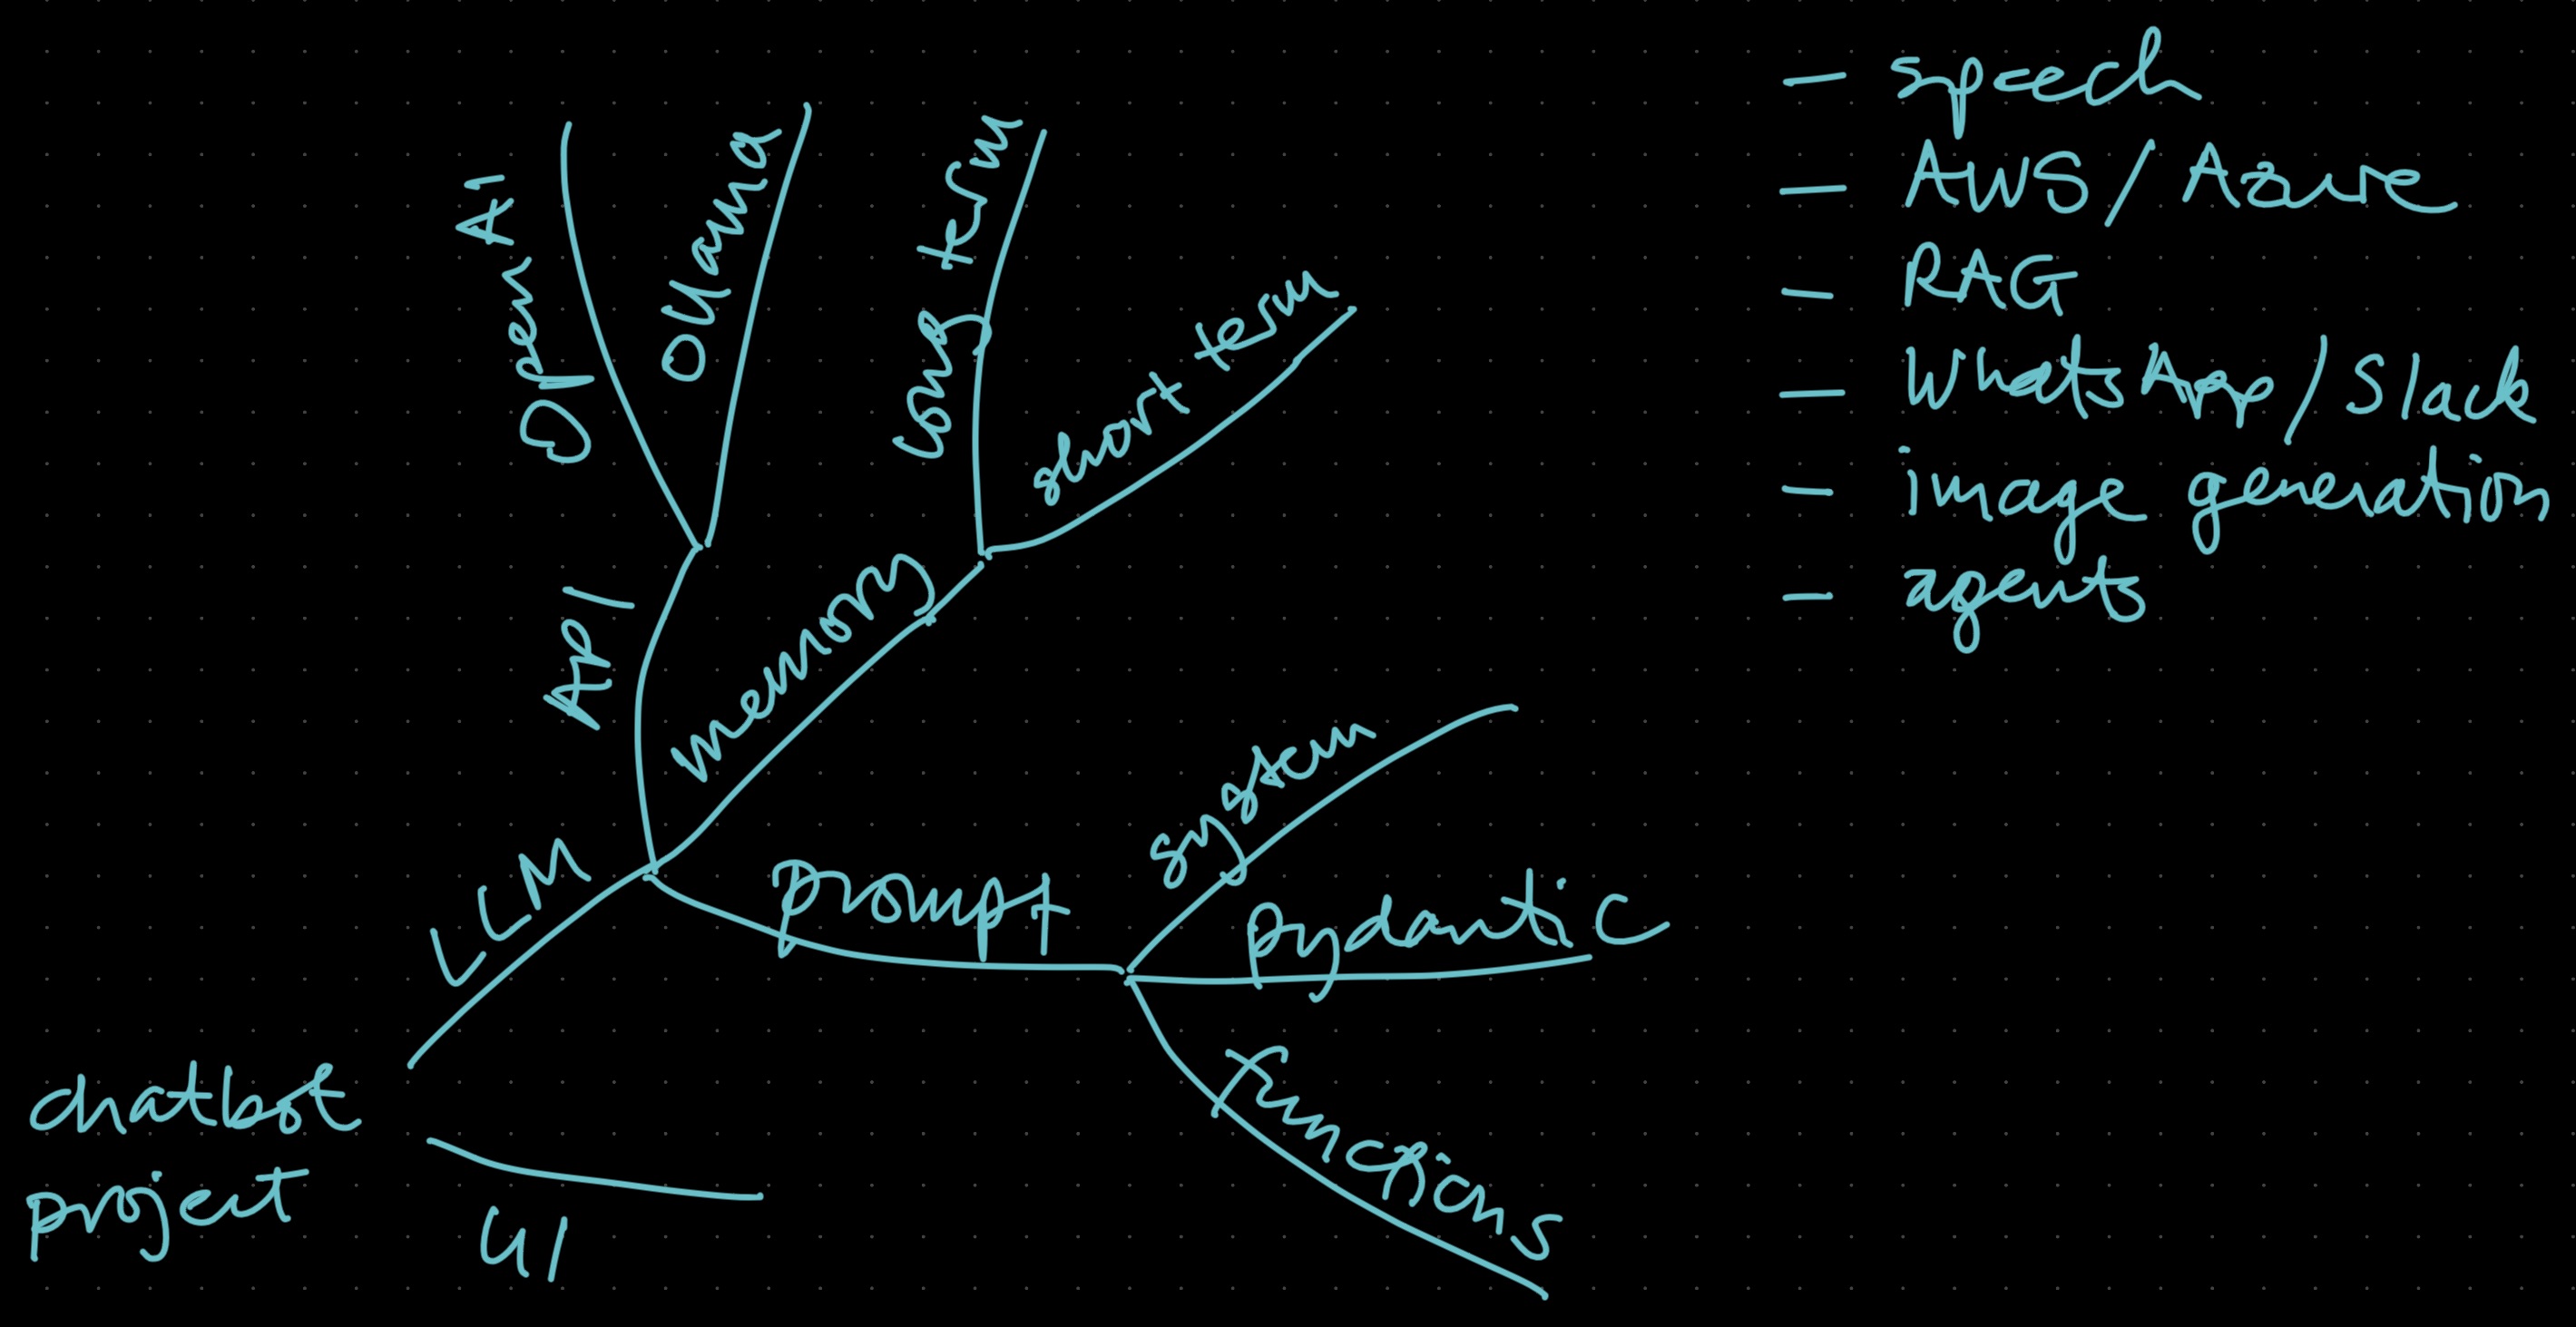 chatbot
project
LLM
API
OpenAI
Ollama
memory
long term
short term
prompt
system
pydantic
functions
UI
- speech
- AWS/Azure
- RAG
- WhatsApp/Slack
- image generation
- agents